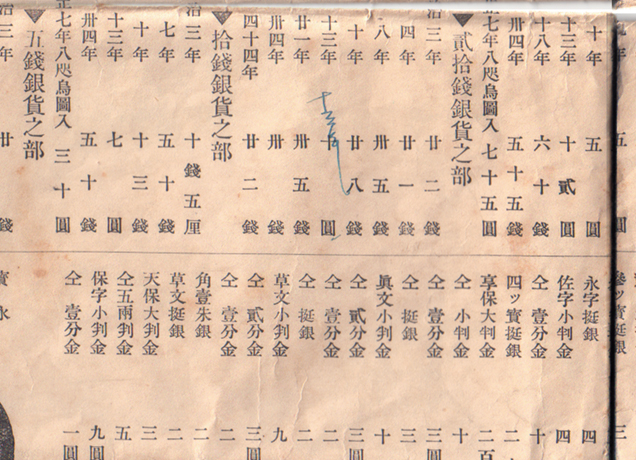 年 五 圓
十年 五 圓
十三年 十貳 圓
十八年 六十錢
卅四年 五十五錢
正七年八咫烏圖入 七十五圓
貳拾錢銀貨之部
治三年 廿二錢
四年 廿一錢
八年 卅五錢
十年 廿八錢
十三年 圓
廿一年 卅五錢
卅四年 卅 錢
四十四年 廿二錢
拾錢銀貨之部
治三年 十錢五厘
七年 五十錢
十年 十三錢
十三年 七 圓
卅四年 五十錢
正七年八咫烏圖入 三十圓
五錢銀貨之部
治三年 廿 錢
參ッ寳挺銀 三
永字挺銀 四
佐字小判金 四
仝 壹分金 十
四ッ寳挺銀 二
享保大判金 二百
仝 小判金 十
仝 壹分金 三圓
仝 挺銀 三
眞文小判金 十
仝 貳分金 三圓
仝 壹分金 二
仝 挺銀 二
草文小判金 九
仝 貳分金 三圓
仝 壹分金 二
角壹朱銀 二
草文挺銀 二
天保大判金 三
仝五兩判金 五
保字小判金 九圓
仝 壹分金 一圓
寳永